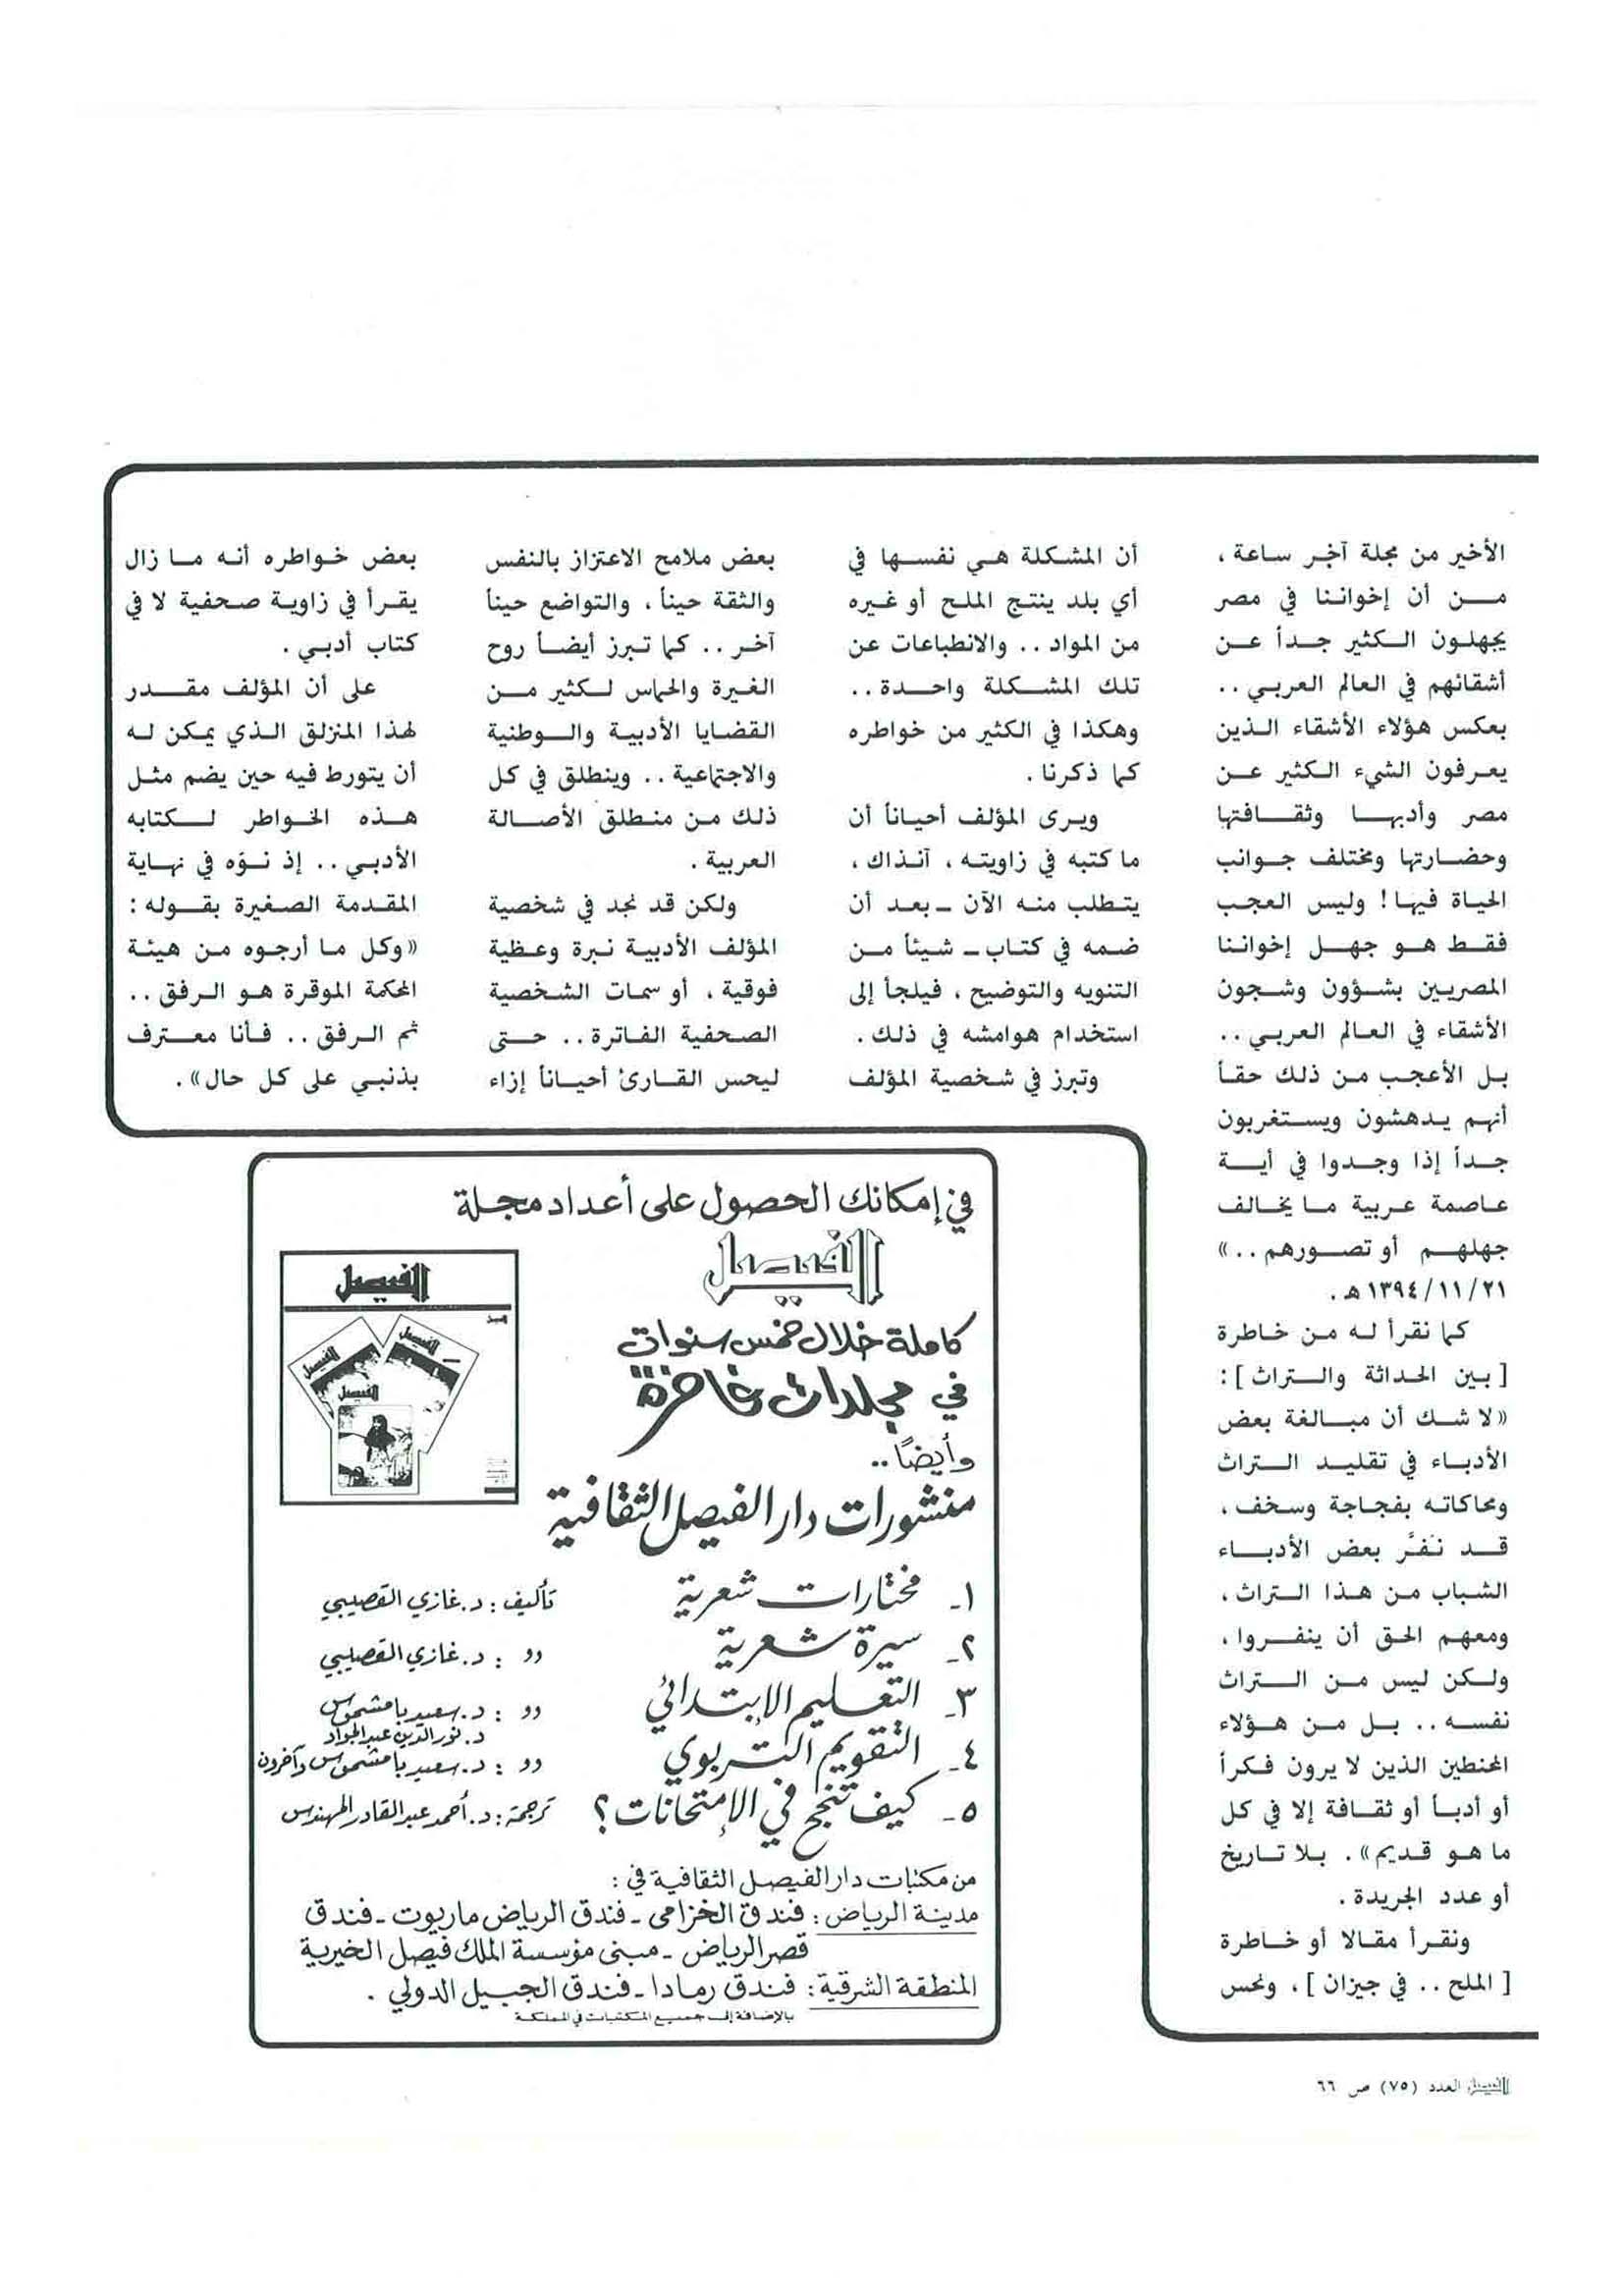 الأخير من مجلة آخر ساعة ،
مـــن أن إخواننا في مصر
يجهلون الكثير جداً عن
أشقائهم في العالم العربي ..
بعكس هؤلاء الأشقاء الذين
يعرفون الشيء الكثير عن
مصر وأدبها وثقافتها
وحضارتها ومختلف جوانب
الحياة فيها ! وليس العجب
فقط هو جهل إخواننا
المصريين بشؤون وشجون
الأشقاء في العالم العربي ..
بل الأعجب من ذلك حقاً
أنهم يدهشون ويستغربون
جداً إذا وجدوا في أية
عاصمة عربية ما يخالف
جهلهم أو تصورهم .. »
١٣٩٤/١١/٢١ هـ .
كما نقرأ له من خاطرة
[ بين الحداثة والتراث ] :
« لا شك أن مبالغة بعض
الأدباء في تقليد التراث
ومحاكاته بفجاجة وسخف ،
قد نفَّر بعض الأدباء
الشباب من هذا التراث ،
ومعهم الحق أن ينفروا ،
ولكن ليس من التراث
نفسه .. بل من هؤلاء
المحنطين الذين لا يرون فكراً
أو أدباً أو ثقافة إلا في كل
ما هو قديم » . بلا تاريخ
أو عدد الجريدة .
ونقرأ مقالا أو خاطرة
[ الملح .. في جيزان ] ، ونحس
أن المشكلة هي نفسها في
أي بلد ينتج الملح أو غيره
من المواد .. والانطباعات عن
تلك المشكلة واحدة ..
وهكذا في الكثير من خواطره
كما ذكرنا .
ويرى المؤلف أحياناً أن
ما كتبه في زاويته ، آنذاك ،
يتطلب منه الآن ـ بعد أن
ضمه في كتاب ـ شيئاً من
التنويه والتوضيح ، فيلجأ إلى
استخدام هوامشه في ذلك .
وتبرز في شخصية المؤلف
بعض ملامح الاعتزاز بالنفس
والثقة حيناً ، والتواضع حيناً
آخر .. كما تبرز أيضاً روح
الغيرة والحماس لكثير من
القضايا الأدبية والوطنية
والاجتماعية .. وينطلق في كل
ذلك من منطلق الأصالة
العربية .
ولكن قد نجد في شخصية
المؤلف الأدبية نبرة وعظية
فوقية ، أو سمات الشخصية
الصحفية الفاترة .. حتى
ليحس القارئ أحياناً إزاء
بعض خواطره أنه ما زال
يقرأ في زاوية صحفية لا في
كتاب أدبي .
على أن المؤلف مقدر
لهذا المنزلق الذي يمكن له
أن يتورط فيه حين يضم مثل
هذه الخواطر لكتابه
الأدبي .. إذ نوّه في نهاية
المقدمة الصغيرة بقوله :
« وكل ما أرجوه من هيئة
المحكمة الموقرة هو الرفق ..
ثم الرفق .. فأنا معترف
بذنبي على كل حال » .
في إمكانك الحصول على أعداد مجلة
الفيصل
كاملة خلال خمس سنوات
في مجلدات فاخرة
وأيضًا ..
منشورات دار الفيصل الثقافية
١ـ مختارات شعرية تأليف : د. غازي القصيبي
٢ـ سيرة شعرية " : د. غازي القصيبي
٣ـ التعليم الابتدائي " : د. سعيد بامشموس
د. نور الدين عبد الجواد
٤ـ التقويم التربوي " : د. سعيد بامشموس وآخرون
٥ـ كيف تنجح في الإمتحانات ؟ ترجمة : د. أحمد عبد القادر المهندس
من مكتبات دار الفيصل الثقافية في :
مدينة الرياض : فندق الخزامى ـ فندق الرياض ماريوت ـ فندق
قصر الرياض ـ مبنى مؤسسة الملك فيصل الخيرية
المنطقة الشرقية : فندق رمادا ـ فندق الجبيل الدولي .
بالإضافة إلى جميع المكتبات في المملكة
الفيصل
الفيصل
الفيصل
الفيصل
الفيصل العدد (٧٥) ص ٦٦